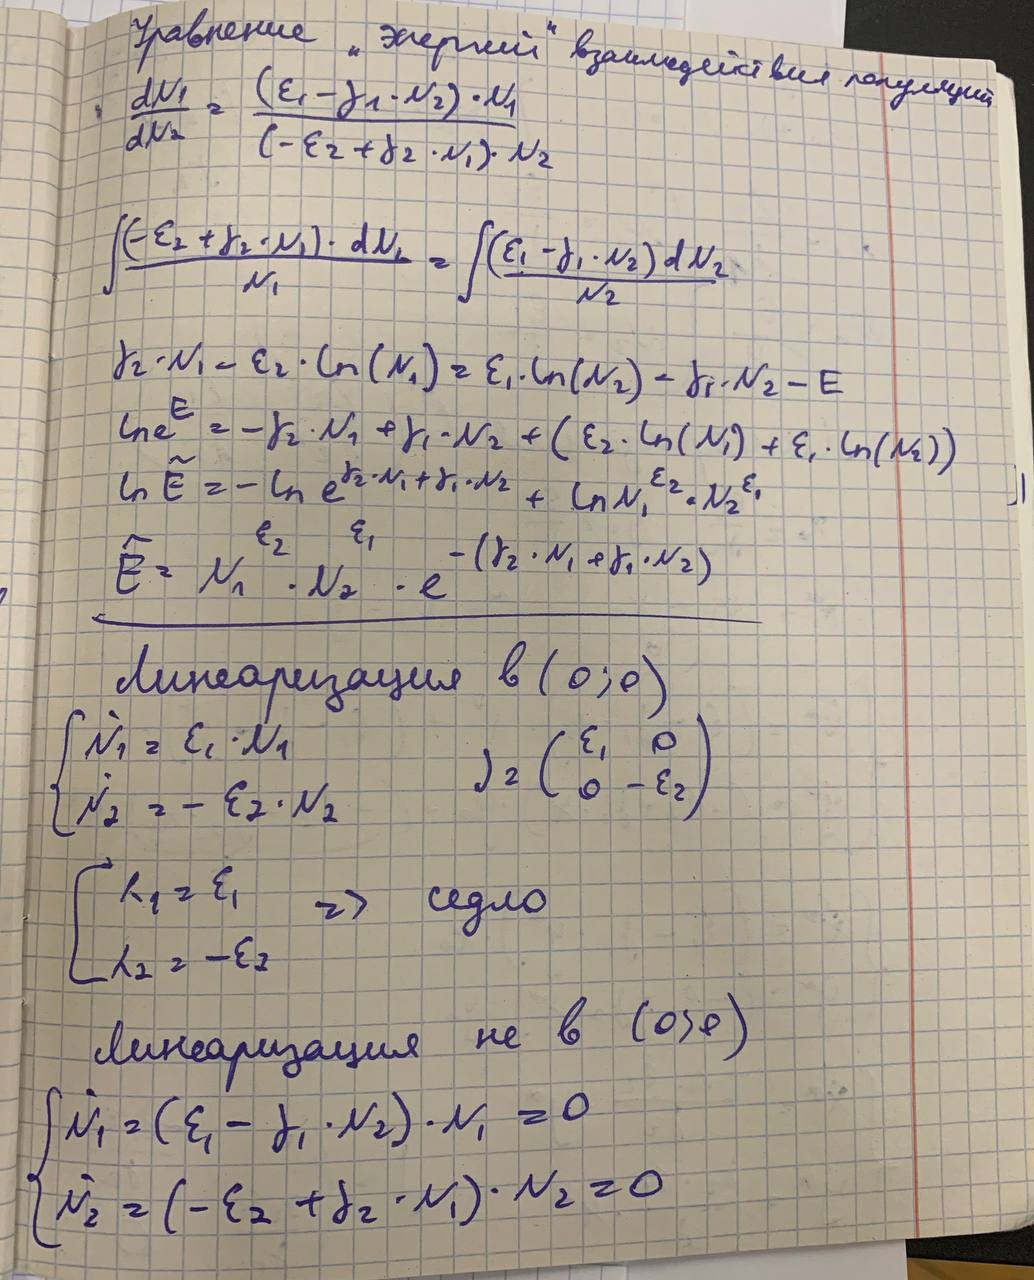 Уравнение „энергий" взаимодействия популяций
dN₁/dN₂ = (ε₁ - γ₁ · N₂) · N₁ / (-ε₂ + γ₂ · N₁) · N₂
∫ (-ε₂ + γ₂ · N₁) · dN₁ / N₁ = ∫ (ε₁ - γ₁ · N₂) dN₂ / N₂
γ₂ · N₁ - ε₂ · ln(N₁) = ε₁ · ln(N₂) - γ₁ · N₂ - E
ln e^E = -γ₂ · N₁ + γ₁ · N₂ + (ε₂ · ln(N₁) + ε₁ · ln(N₂))
ln Ẽ = - ln e^(γ₂ · N₁ + γ₁ · N₂) + ln N₁^ε₂ · N₂^ε₁
Ẽ = N₁^ε₂ · N₂^ε₁ · e^-(γ₂ · N₁ + γ₁ · N₂)
Линеаризация в (0;0)
{ Ṅ₁ = ε₁ · N₁
Ṅ₂ = - ε₂ · N₂
J = (ε₁ 0
0 -ε₂)
[ λ₁ = ε₁
λ₂ = -ε₂
=> седло
Линеаризация не в (0;0)
{ Ṅ₁ = (ε₁ - γ₁ · N₂) · N₁ = 0
Ṅ₂ = (-ε₂ + γ₂ · N₁) · N₂ = 0